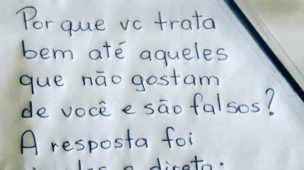 Por que vc trata
bem até aqueles
que não gostam
de você e são falsos?
A resposta foi
e direta: